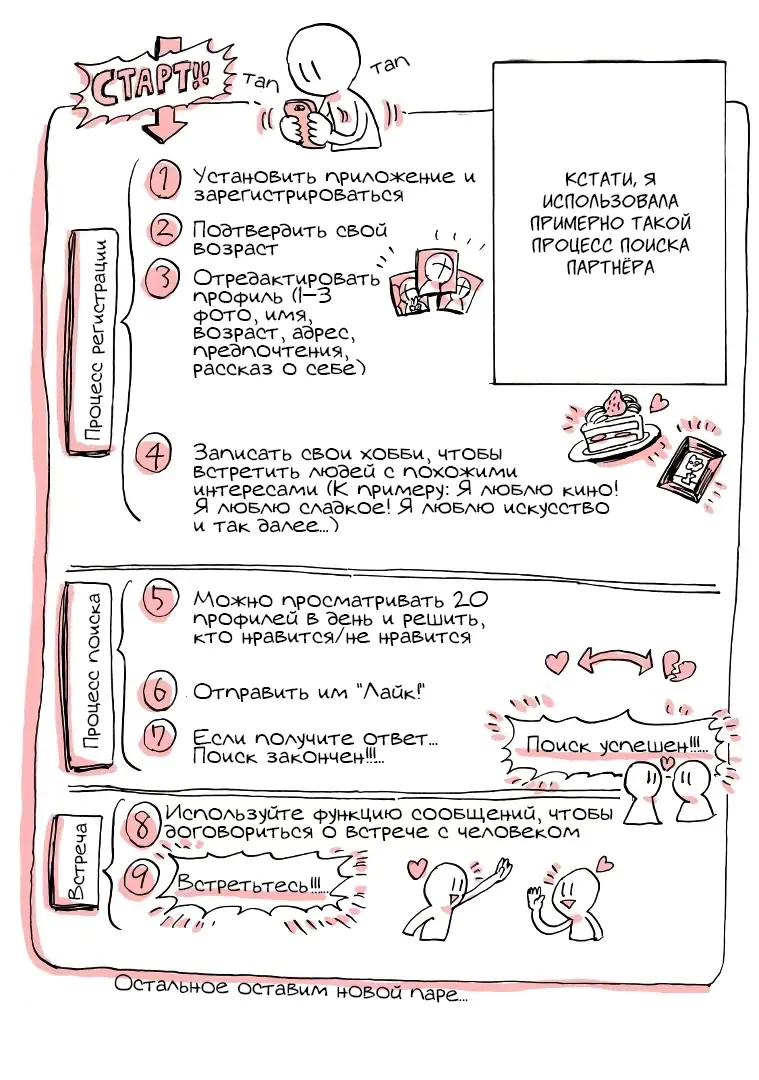 СТАРТ!!
Tап
Tап
КСТАТИ, Я
ИСПОЛЬЗОВАЛА
ПРИМЕРНО ТАКОЙ
ПРОЦЕСС ПОИСКА
ПАРТНЁРА
Процесс регистрации
1 Установить приложение и
зарегистрироваться
2 Подтвердить свой
возраст
3 Отредактировать
профиль (1–3
фото, имя,
возраст, адрес,
предпочтения,
рассказ о себе)
4 Записать свои хобби, чтобы
встретить людей с похожими
интересами (К примеру: Я люблю кино!
Я люблю сладкое! Я люблю искусство
и так далее...)
Процесс поиска
5 Можно просматривать 20
профилей в день и решить,
кто нравится/не нравится
6 Отправить им "Лайк!"
7 Если получите ответ...
Поиск закончен!!!...
Поиск успешен!!!...
Встреча
8 Используйте функцию сообщений, чтобы
договориться о встрече с человеком
9 Встретьтесь!!!...
Остальное оставим новой паре...